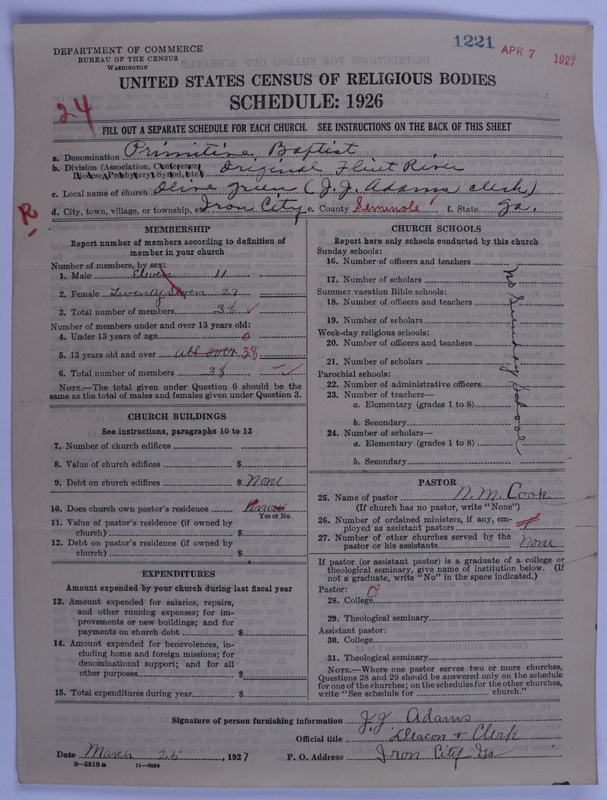 1221 APR 7 1927
DEPARTMENT OF COMMERCE
BUREAU OF THE CENSUS
WASHINGTON
UNITED STATES CENSUS OF RELIGIOUS BODIES
SCHEDULE: 1926
24
FILL OUT A SEPARATE SCHEDULE FOR EACH CHURCH. SEE INSTRUCTIONS ON THE BACK OF THIS SHEET
a. Denomination Primitive Baptist
b. Division (Association, Conference, Diocese, Presbytery, Synod, etc.) Original Flint River
c. Local name of church Olive Green (J. J. Adams clerk)
d. City, town, village, or township, Iron City e. County Seminole f. State Ga.
R
MEMBERSHIP
Report number of members according to definition of
member in your church
Number of members, by sex:
1. Male Eleven 11
2. Female Twenty Seven 27
3. Total number of members 38
Number of members under and over 13 years old:
4. Under 13 years of age 0
5. 13 years old and over all over 38
6. Total number of members 38
NOTE.—The total given under Question 6 should be
same as the total of males and females given under Question 3.
CHURCH BUILDINGS
See instructions, paragraphs 10 to 12
7. Number of church edifices
8. Value of church edifices $
9. Debt on church edifices $ None
10. Does church own pastor's residence
Yes or No
11. Value of pastor's residence (if owned by
church) $
12. Debt on pastor's residence (if owned by
church) $
EXPENDITURES
Amount expended by your church during last fiscal year
13. Amount expended for salaries, repairs,
and other running expenses; for im-
provements or new buildings; and for
payments on church debt $
14. Amount expended for benevolences, in-
cluding home and foreign missions; for
denominational support; and for all
other purposes $
15. Total expenditures during year $
CHURCH SCHOOLS
Report here only schools conducted by this church
Sunday schools:
16. Number of officers and teachers
17. Number of scholars
Summer vacation Bible schools:
18. Number of officers and teachers
19. Number of scholars
Week-day religious schools:
20. Number of officers and teachers
21. Number of scholars
Parochial schools:
22. Number of administrative officers
23. Number of teachers—
a. Elementary (grades 1 to 8)
b. Secondary
24. Number of scholars—
a. Elementary (grades 1 to 8)
b. Secondary
No Sunday School
PASTOR
25. Name of pastor N. M. Cook
(If church has no pastor, write "None")
26. Number of ordained ministers, if any, em-
ployed as assistant pastors
27. Number of other churches served by the
pastor or his assistants None
If pastor (or assistant pastor) is a graduate of a college or
theological seminary, give name of institution below. (If
not a graduate, write "No" in the space indicated.)
Pastor: 0
28. College
29. Theological seminary
Assistant pastor:
30. College
31. Theological seminary
NOTE.—Where one pastor serves two or more churches,
Questions 28 and 29 should be answered only on the schedule
for one of the churches; on the schedules for the other churches,
write "See schedule for church."
Signature of person furnishing information J. J. Adams
Official title Deacon & Clerk
Date March 25, 1927 P. O. Address Iron City Ga
8—5518 a 11—9064